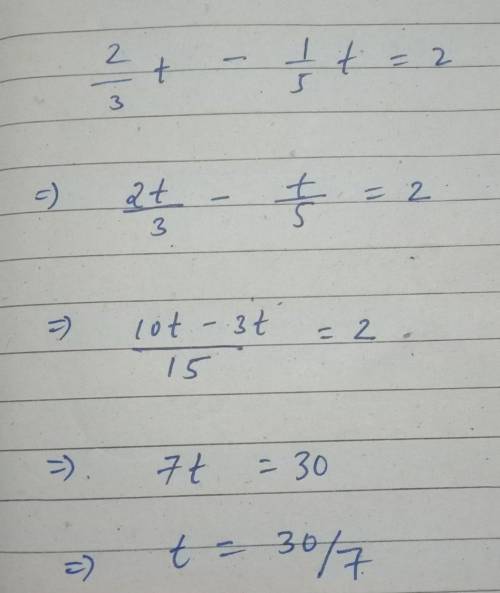 2/3 t - 1/5 t = 2
=) 2t/3 - t/5 = 2
=) 10t - 3t/15 = 2.
=). 7t = 30
=) t = 30/7.